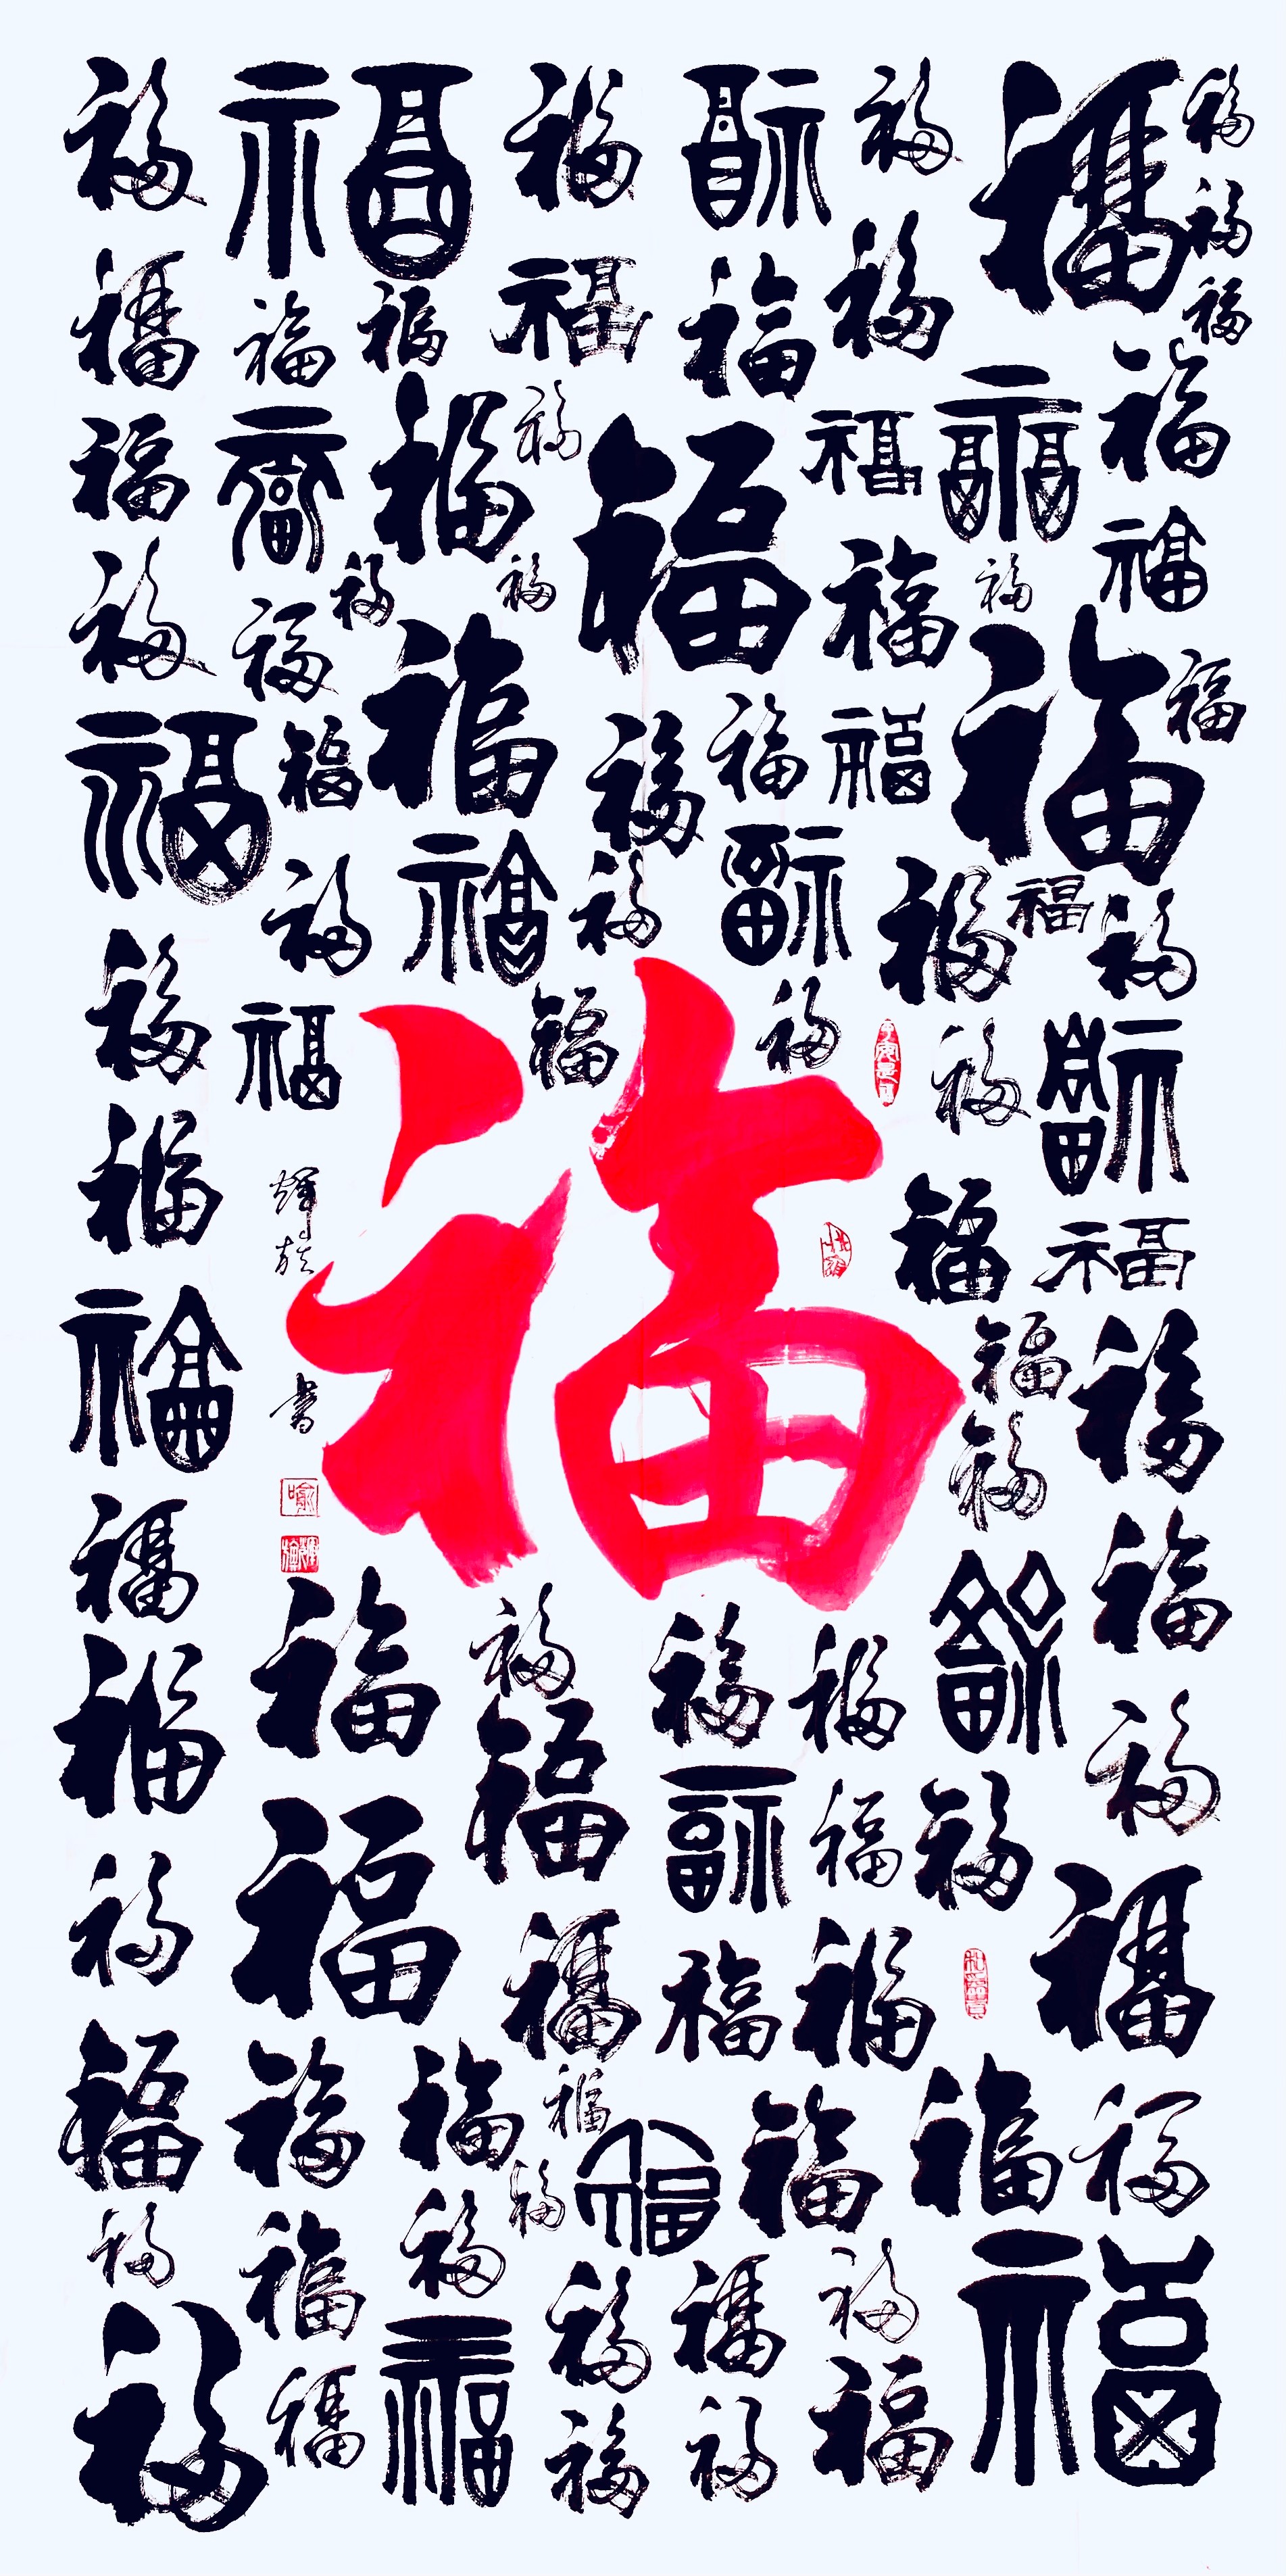 福福福福福福福
福福福福福福福福
福福福福福福福福
福福福福福福福
福福福福福福福福
福福福福福福福
福福福福福福
福福福福
福福福福
福福福福福福福
福福福福福福
福福福福福福
福福福福福福福
福福福福福
福福福福
福福福福福福
輝
書
喻